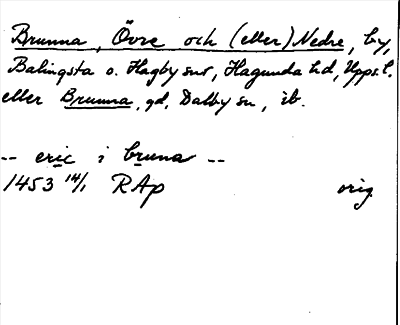 Brunna, Övre och (eller) Nedre, by,
Balingsta o. Hagby snr, Hagunda hd, Upps. l.
eller Brunna, gd, Dalby sn, ib.
-- eric i bruna --
1453 14/1 RAp orig.